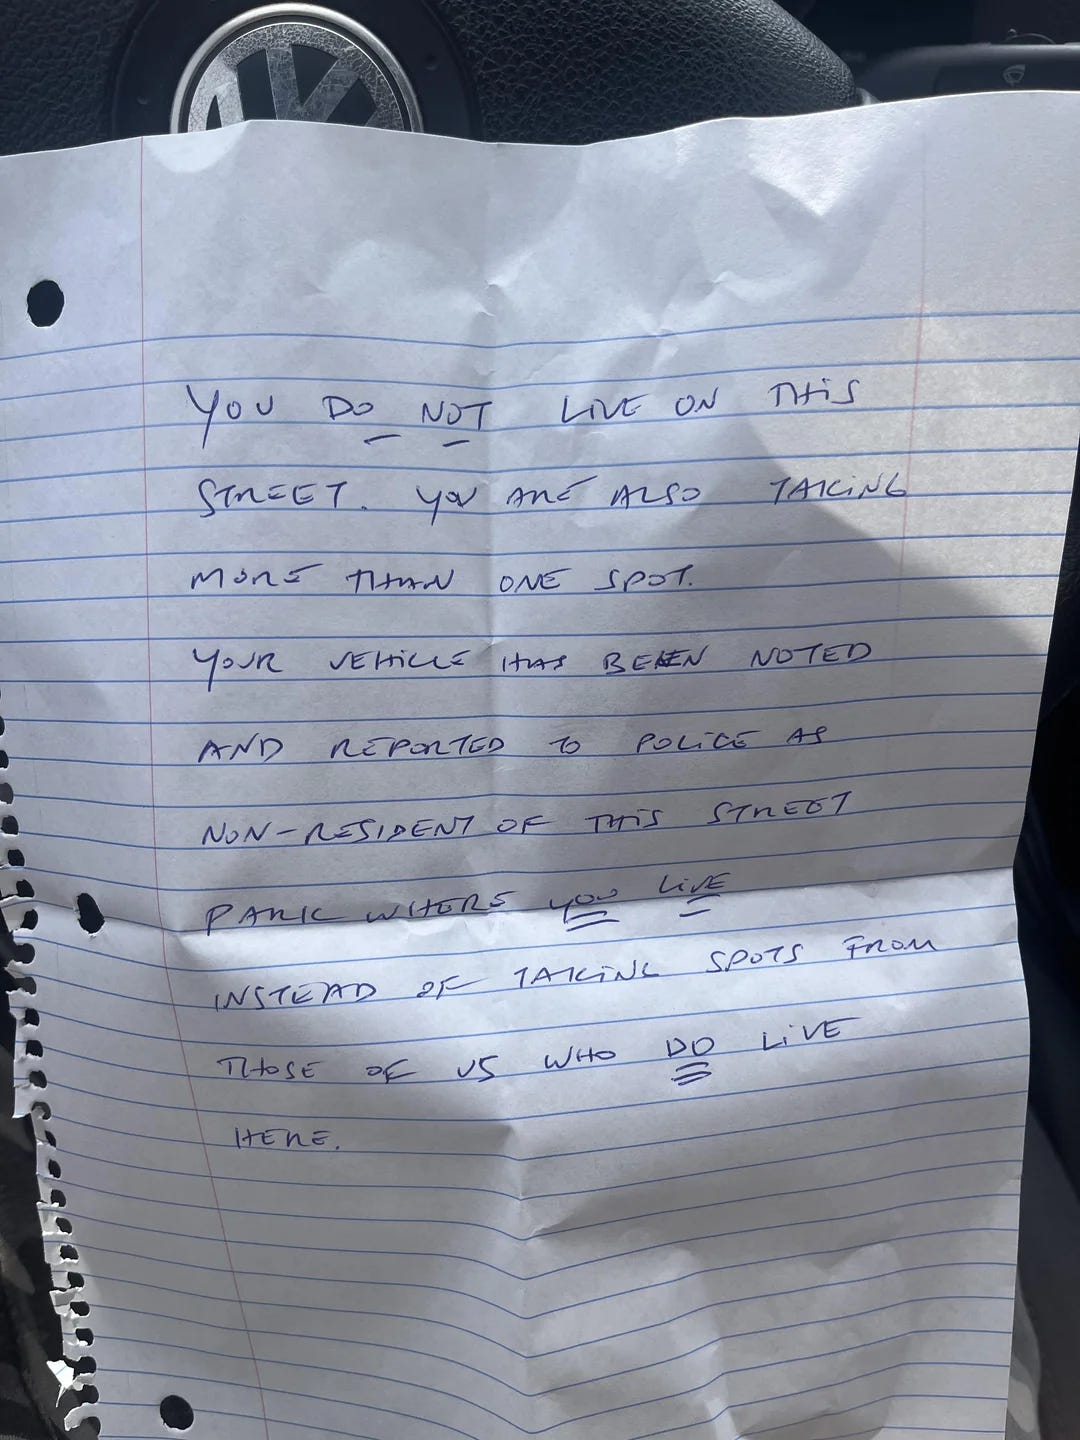 YOU DO NOT LIVE ON THiS
STREET. YOU ARE ALSO TAKiNG
MORE THAN ONE SPOT.
YOUR VEHiCLE HAS BEEN NOTED
AND REPORTED TO POLiCE AS
NON-RESIDENT OF THiS STREET
PARK WHERE YOU LiVE
INSTEAD OF TAKiNG SPOTS FROM
THOSE OF US WHO DO LiVE
HERE.